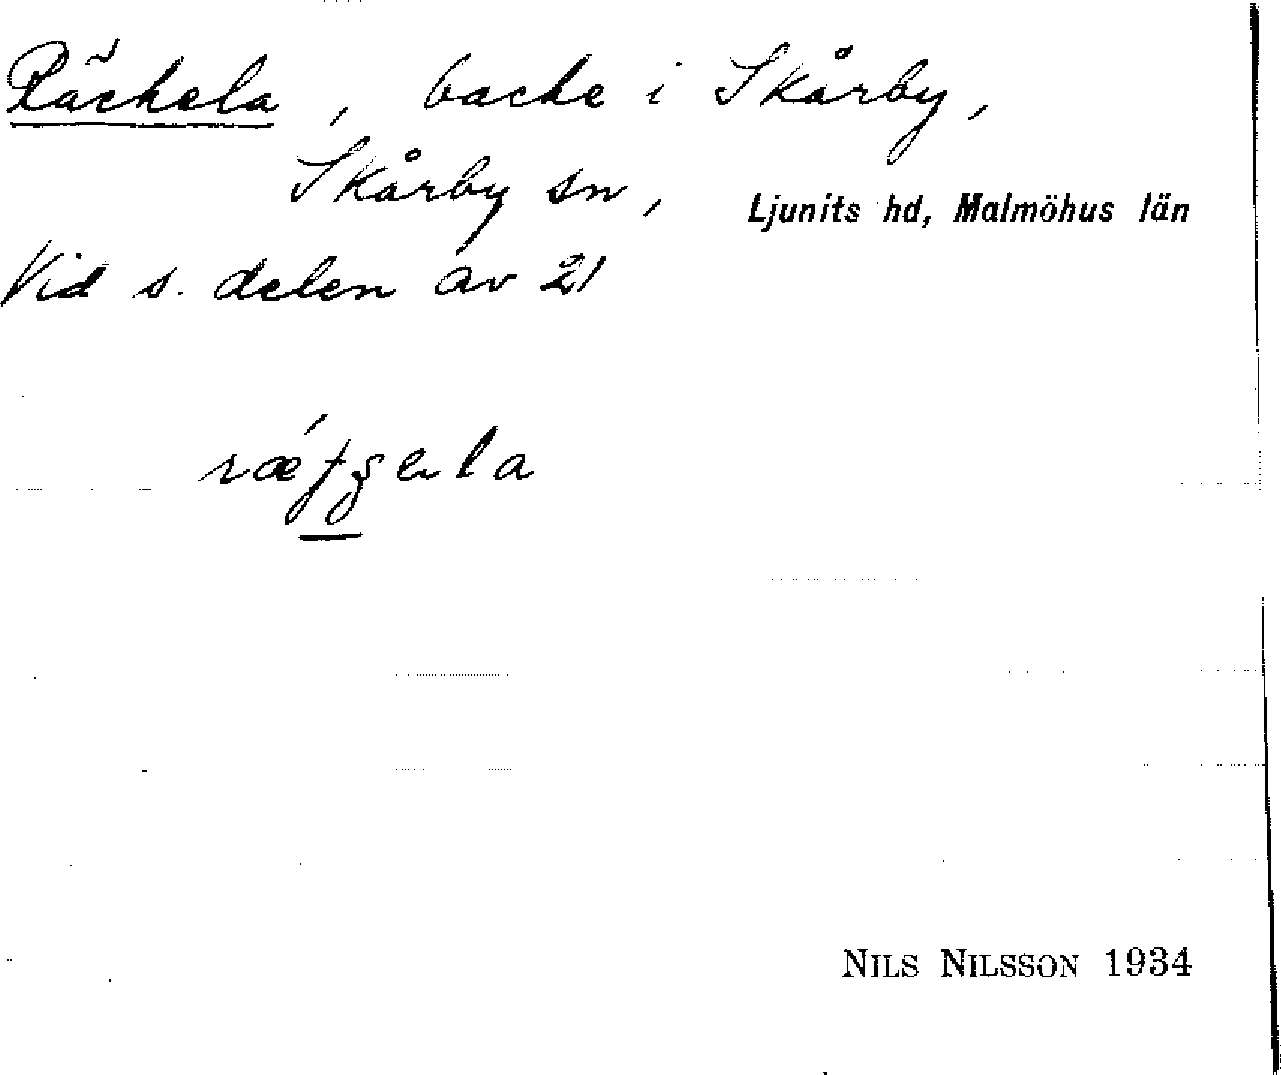 Räckela, backe i Skårby,
Skårby sn, Ljunits hd, Malmöhus län
Vid s. delen av 21
NILS NILSSON 1934